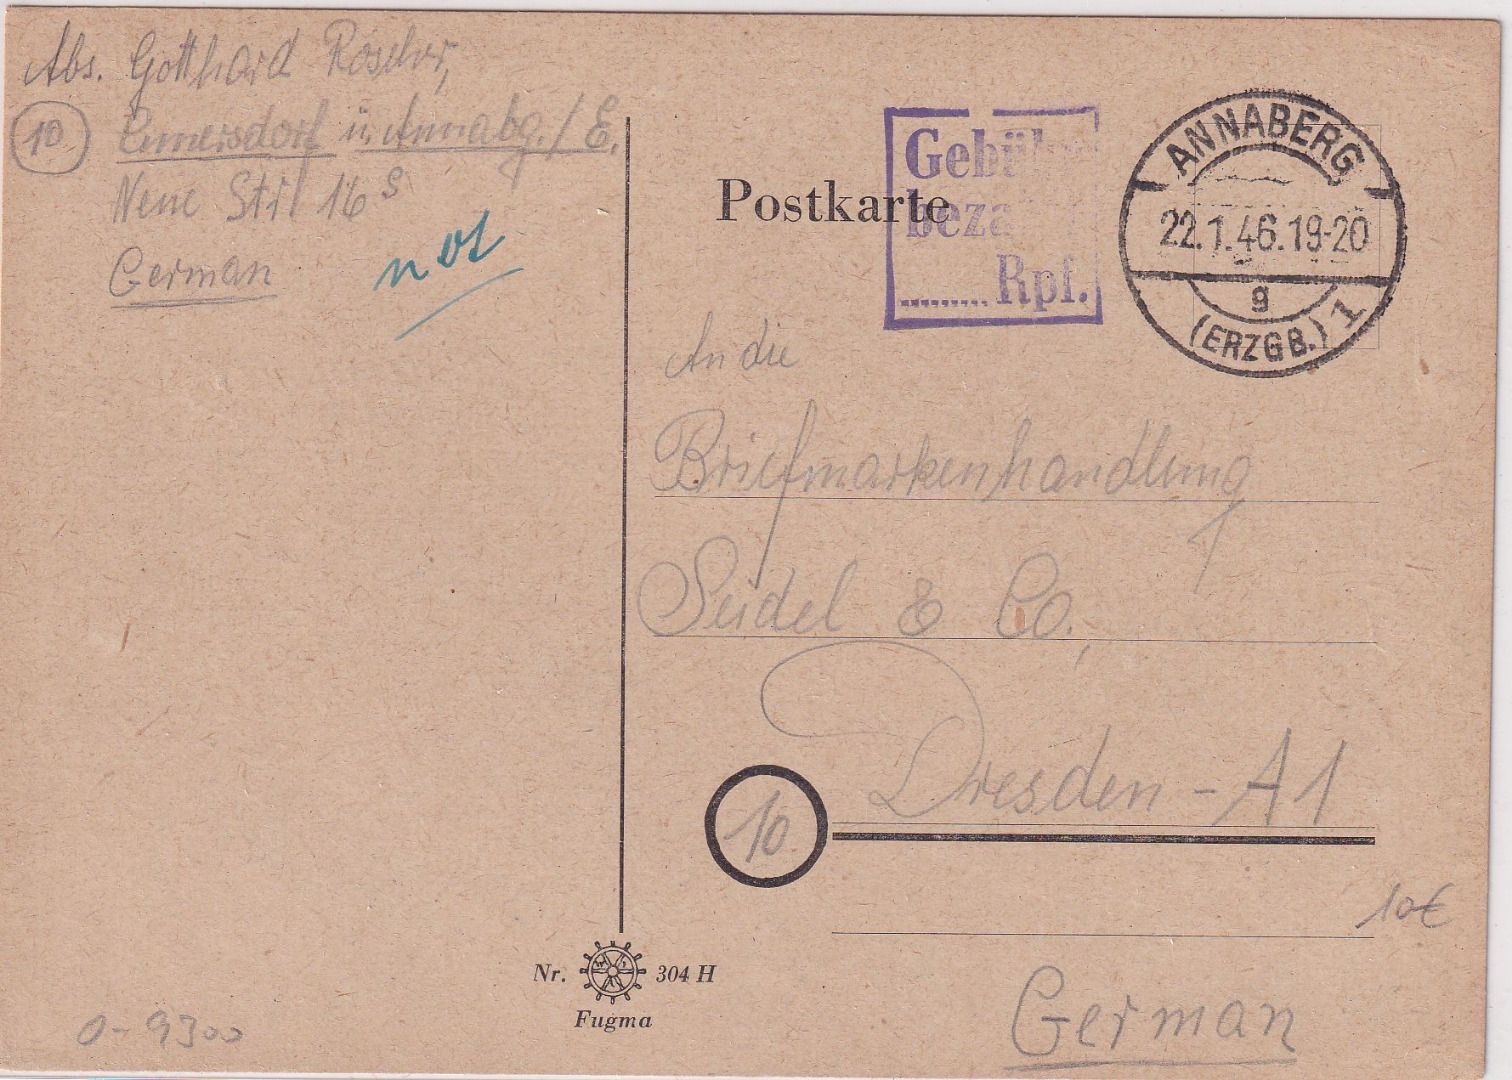 Abs. Gotthard Roscher,
10 Cunersdorf ü. Annabg./E.
Neue Str. 16
German
not
Postkarte
Gebühr
beza
Rpf.
ANNABERG
22.1.46.19-20
g
(ERZGB.) 1
An die
Briefmarkenhandlung
Seidel & Co.,
10 Dresden - A1
10€
German
Nr. 304 H
Fugma
0-9300